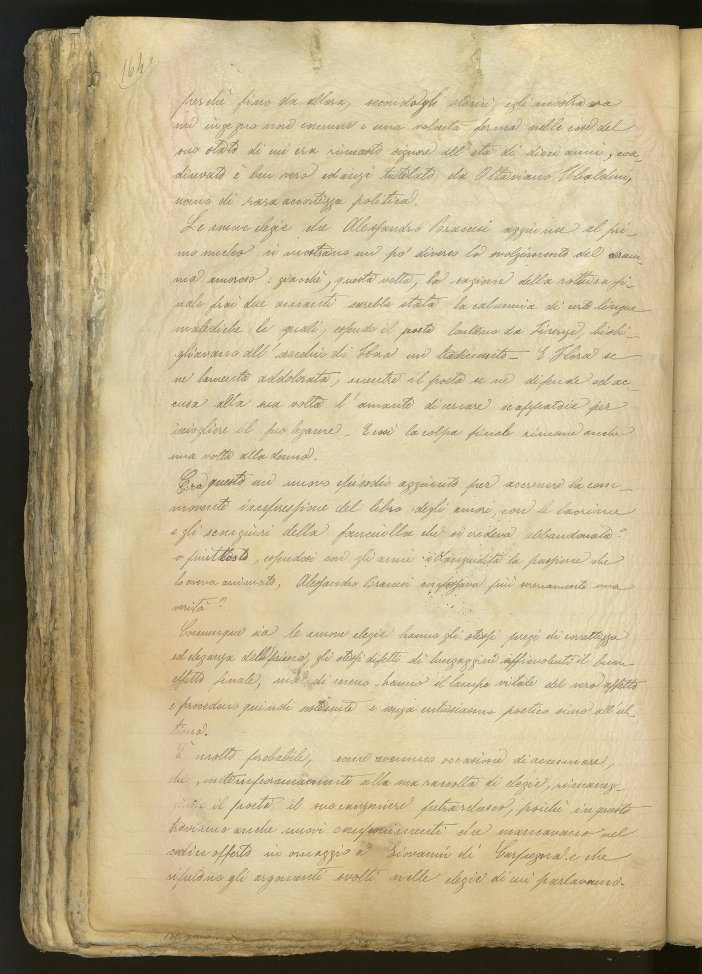 164
perchè fino da allora, secondo gli storici, egli mostrava
un ingegno non comune e una volontà ferma nelle cose del
suo stato di cui era rimasto signore all'età di dieci anni, coa-
diuvato è ben vero ed anzi tutelato da Ottaviano Ubaldini,
uomo di rara accortezza politica.
Le nuove elegie che Alessandro Braccesi aggiunse al pri-
mo nucleo ci mostrano un po' diverso lo svolgimento del dram-
ma amoroso: giacchè, questa volta, la cagione della rottura fi-
nale fra i due amanti sarebbe stata la calunnia di certe lingue
malediche le quali, essendo il poeta lontano da Firenze, bisbi-
gliavano all'orecchio di Flora un tradimento - E Flora se
ne lamenta addolorata, mentre il poeta se ne difende ed ac-
cusa alla sua volta l'amante di cercare scappatoie per
isciogliere il suo legame - E così la colpa finale rimane anche
una volta alla donna.
Era questo un nuovo episodio aggiunto per accrescere la com-
movente impressione del libro degli amori, con le lacrime
e gli scongiuri della fanciulla che si credeva abbandonata?
o piuttosto, essendosi con gli anni illanguidita la passione che
lo aveva animato, Alessandro Braccesi confessava più serenamente una
verità?
Comunque sia le nuove elegie hanno gli stessi pregi di correttezza
ed eleganza delle prime, gli stessi difetti di lungaggini affievolenti il buon
effetto finale, ma di meno hanno il lampo vitale del vero affetto
e procedono quindi e senza entusiasmo poetico sino all'ul-
tima.
È molto probabile, come avemmo occasione di accennare,
che, contemporaneamente alla sua raccolta di elegie, rimaneg-
giasse il poeta il suo canzoniere petrarchesco, poichè in questo
troviamo anche nuovi componimenti che mancavano nel
codice offerto in omaggio a Giovanni di Carpegna e che
rifredono gli argomenti svolti nelle elegie di cui parlavamo.